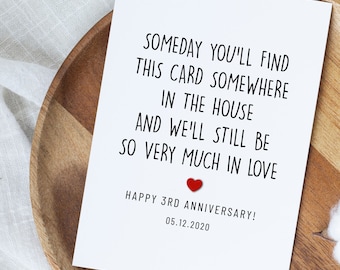 SOMEDAY YOU'LL FIND
THIS CARD SOMEWHERE
IN THE HOUSE
AND WE'LL STILL BE
SO VERY MUCH IN LOVE
HAPPY 3RD ANNIVERSARY!
05.12.2020